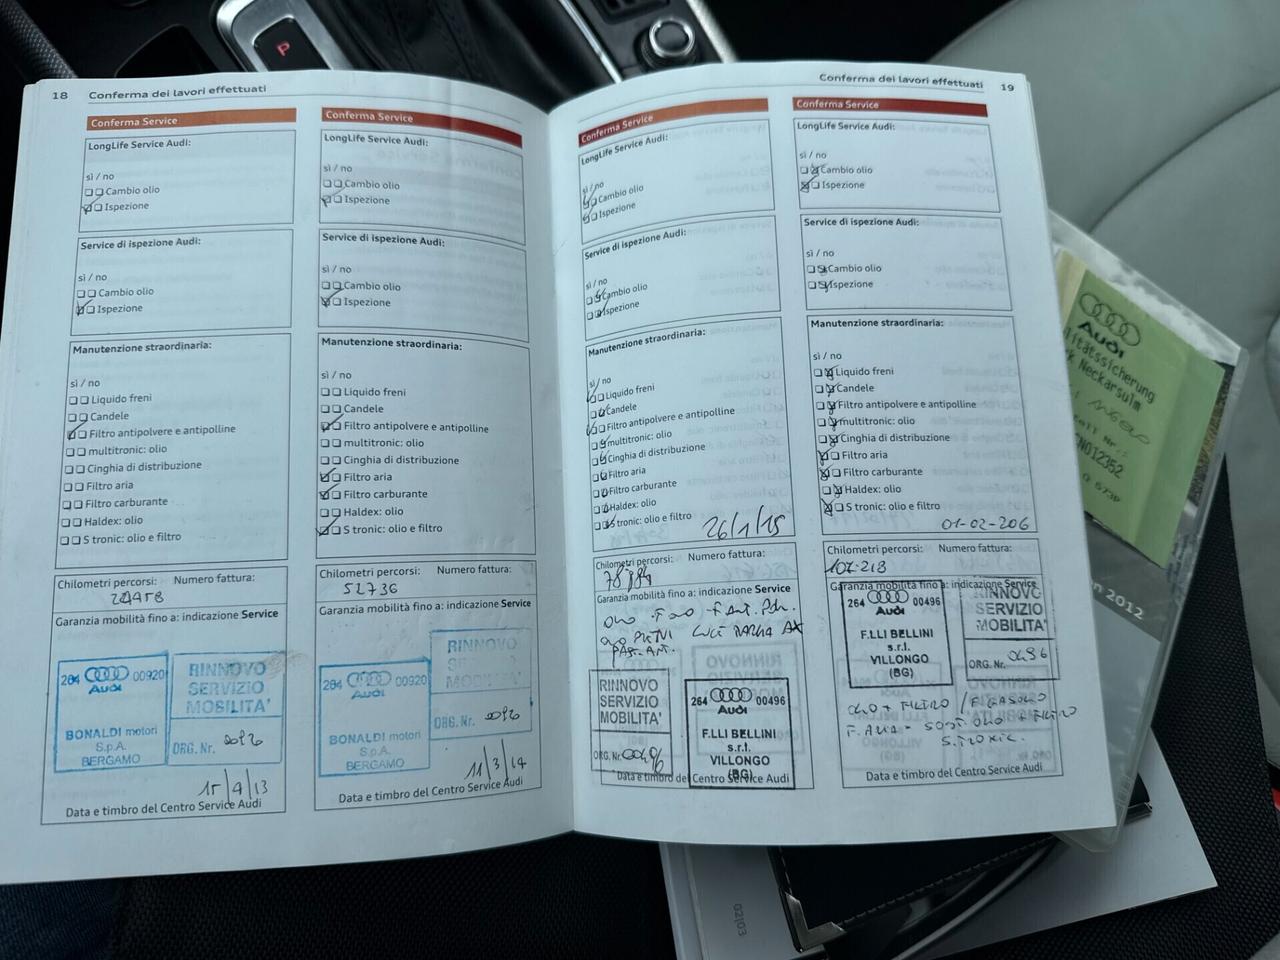 18 Conferma dei lavori effettuati
Conferma Service
LongLife Service Audi:
sì / no
Cambio olio
Ispezione
Service di ispezione Audi:
sì / no
Cambio olio
Ispezione
Manutenzione straordinaria:
sì / no
Liquido freni
Candele
Filtro antipolvere e antipolline
multitronic: olio
Cinghia di distribuzione
Filtro aria
Filtro carburante
Haldex: olio
S tronic: olio e filtro
Chilometri percorsi: Numero fattura:
Garanzia mobilità fino a: indicazione Service
264 00920
Audi
BONALDI motori
S.p.A.
BERGAMO
RINNOVO
SERVIZIO
MOBILITA'
ORG. Nr.
15/4/13
Data e timbro del Centro Service Audi
Conferma Service
LongLife Service Audi:
sì / no
Cambio olio
Ispezione
Service di ispezione Audi:
sì / no
Cambio olio
Ispezione
Manutenzione straordinaria:
sì / no
Liquido freni
Candele
Filtro antipolvere e antipolline
multitronic: olio
Cinghia di distribuzione
Filtro aria
Filtro carburante
Haldex: olio
S tronic: olio e filtro
Chilometri percorsi: Numero fattura:
52736
Garanzia mobilità fino a: indicazione Service
264 00920
Audi
BONALDI motori
S.p.A.
BERGAMO
RINNOVO
SERVIZIO
MOBILITA'
ORG. Nr.
11/3/14
Data e timbro del Centro Service Audi
Conferma dei lavori effettuati 19
Conferma Service
LongLife Service Audi:
sì / no
Cambio olio
Ispezione
Service di ispezione Audi:
sì / no
Cambio olio
Ispezione
Manutenzione straordinaria:
sì / no
Liquido freni
Candele
Filtro antipolvere e antipolline
multitronic: olio
Cinghia di distribuzione
Filtro aria
Filtro carburante
Haldex: olio
S tronic: olio e filtro
26/1/15
Chilometri percorsi: Numero fattura:
Garanzia mobilità fino a: indicazione Service
RINNOVO
SERVIZIO
MOBILITA'
ORG. Nr. 00496
264 00496
Audi
F.LLI BELLINI
s.r.l.
VILLONGO
(BG)
Data e timbro del Centro Service Audi
Conferma Service
LongLife Service Audi:
sì / no
Cambio olio
Ispezione
Service di ispezione Audi:
sì / no
Cambio olio
Ispezione
Manutenzione straordinaria:
sì / no
Liquido freni
Candele
Filtro antipolvere e antipolline
multitronic: olio
Cinghia di distribuzione
Filtro aria
Filtro carburante
Haldex: olio
S tronic: olio e filtro
01-02-206
Chilometri percorsi: Numero fattura:
102.213
Garanzia mobilità fino a: indicazione Service
264 00496
Audi
F.LLI BELLINI
s.r.l.
VILLONGO
(BG)
RINNOVO
SERVIZIO
MOBILITA'
ORG. Nr. 0496
OLIO + FILTRO / F. GASOLIO
F. ARIA - SOST. OLIO + FILTRO
S. TRONIC.
Data e timbro del Centro Service Audi
P
Audi
Neckarsulm
2012
02|03